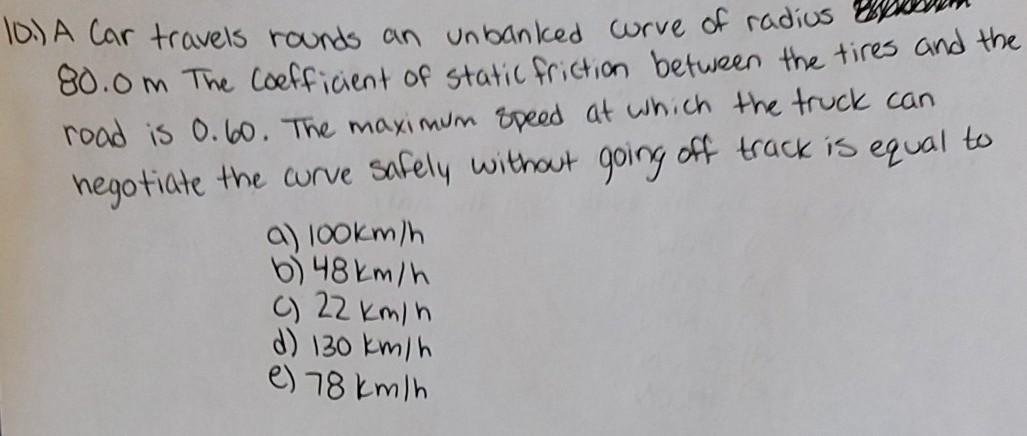 10.) A Car travels rounds an unbanked curve of radius
80.0 m The Coefficient of static friction between the tires and the
road is 0.60. The maximum speed at which the truck can
negotiate the curve safely without going off track is equal to
a) 100km/h
b) 48 km/h
c) 22 km/h
d) 130 km/h
e) 78 km/h